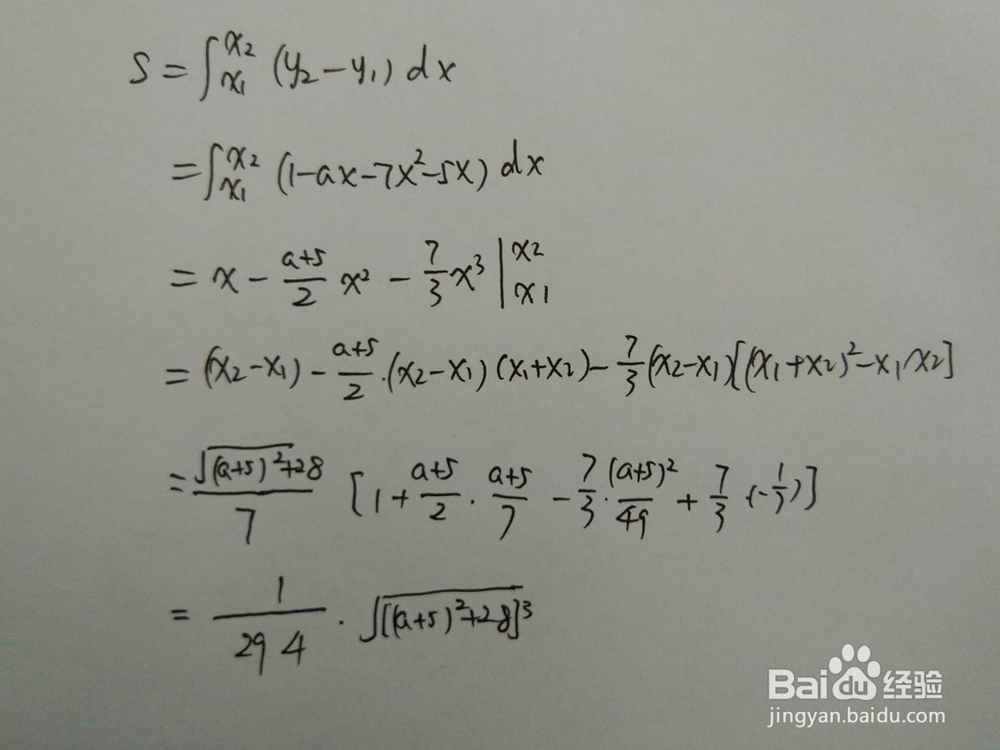 S = ∫_{x1}^{x2} (y₂ - y₁) dx
= ∫_{x1}^{x2} (1 - ax - 7x² - 5x) dx
= x - \frac{a+5}{2} x² - \frac{7}{3} x³ |_{x1}^{x2}
= (x₂ - x₁) - \frac{a+5}{2} · (x₂ - x₁)(x₁ + x₂) - \frac{7}{3} (x₂ - x₁)[(x₁ + x₂)² - x₁x₂]
= \frac{\sqrt{(a+5)²+28}}{7} [1 + \frac{a+5}{2} · \frac{a+5}{7} - \frac{7}{3} · \frac{(a+5)²}{49} + \frac{7}{3} · (-\frac{1}{7})]
= \frac{1}{294} · \sqrt{[(a+5)²+28]³}
Baidu经验
jingyan.baidu.com